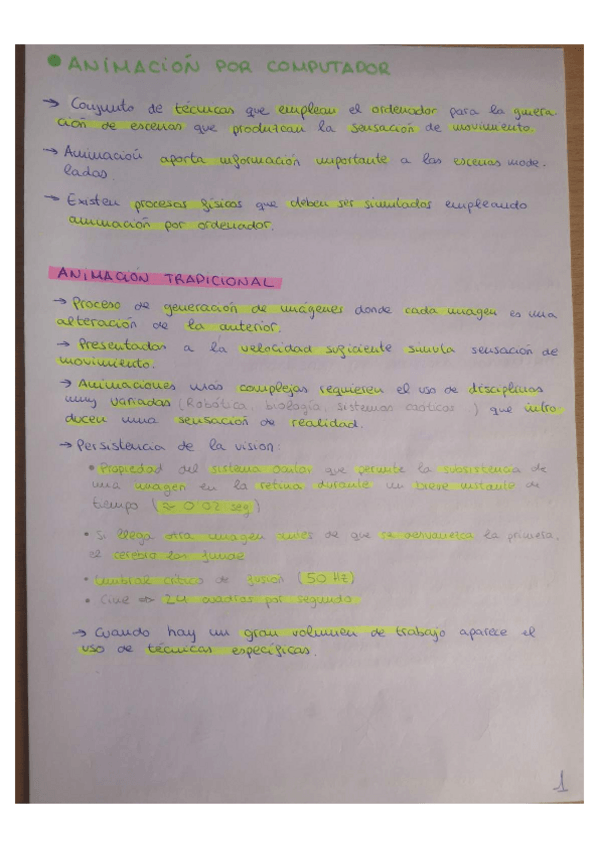 ● ANIMACIÓN POR COMPUTADOR
→ Conjunto de técnicas que emplean el ordenador para la genera-
ción de escenas que produzcan la sensación de movimiento.
→ Animación aporta información importante a las escenas mode-
ladas.
→ Existen procesos físicos que deben ser simulados empleando
animación por ordenador.
ANIMACIÓN TRADICIONAL
→ Proceso de generación de imágenes donde cada imagen es una
alteración de la anterior.
→ Presentadas a la velocidad suficiente simula sensación de
movimiento.
→ Animaciones más complejas requieren el uso de disciplinas
muy variadas (Robótica, biología, sistemas caóticos ) que intro
ducen una sensación de realidad.
→ Persistencia de la vision:
• Propiedad del sistema ocular que permite la subsistencia de
una imagen en la retina durante un breve instante de
tiempo (≈ 0 02 seg)
• Si llega otra imagen antes de que se desvanezca la primera,
el cerebro las funde
• Umbral crítico de fusión (50 Hz)
• Cine ⇒ 24 cuadros por segundo
→ Cuando hay un gran volumen de trabajo aparece el
uso de técnicas específicas.
1